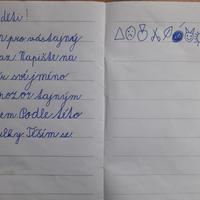 děti!
pro vás tajný
az. Napište na
své jméno
pozor tajným
em. Podle této
ulky. Těším se